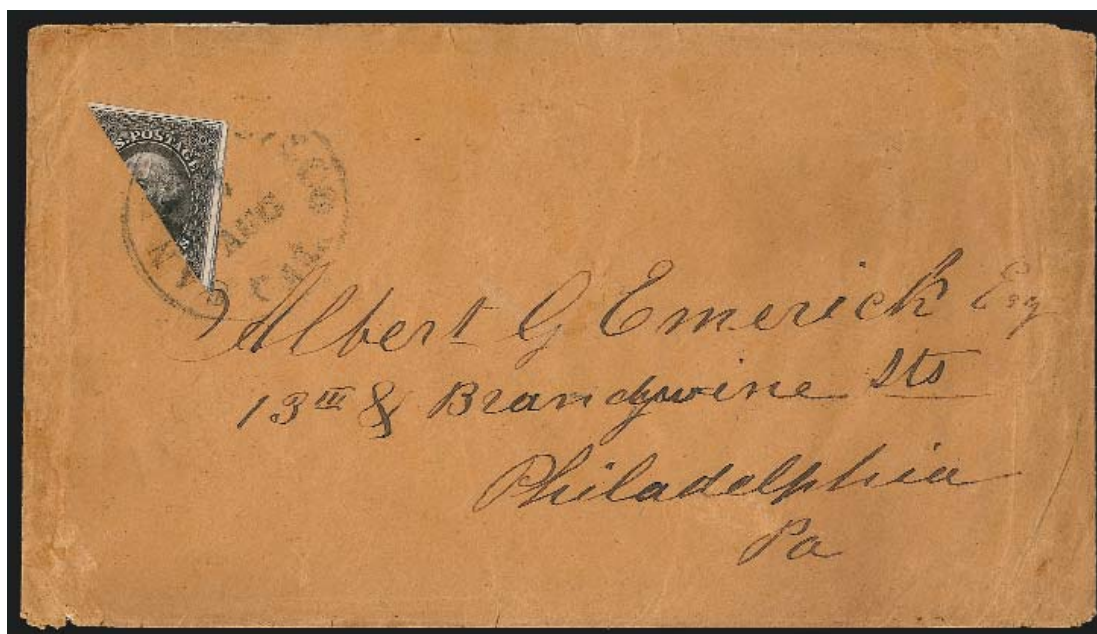 S. POSTAGE
AUG
CAL.
Albert G Emerick Esq
13th & Brandywine Sts
Philadelphia
Pa